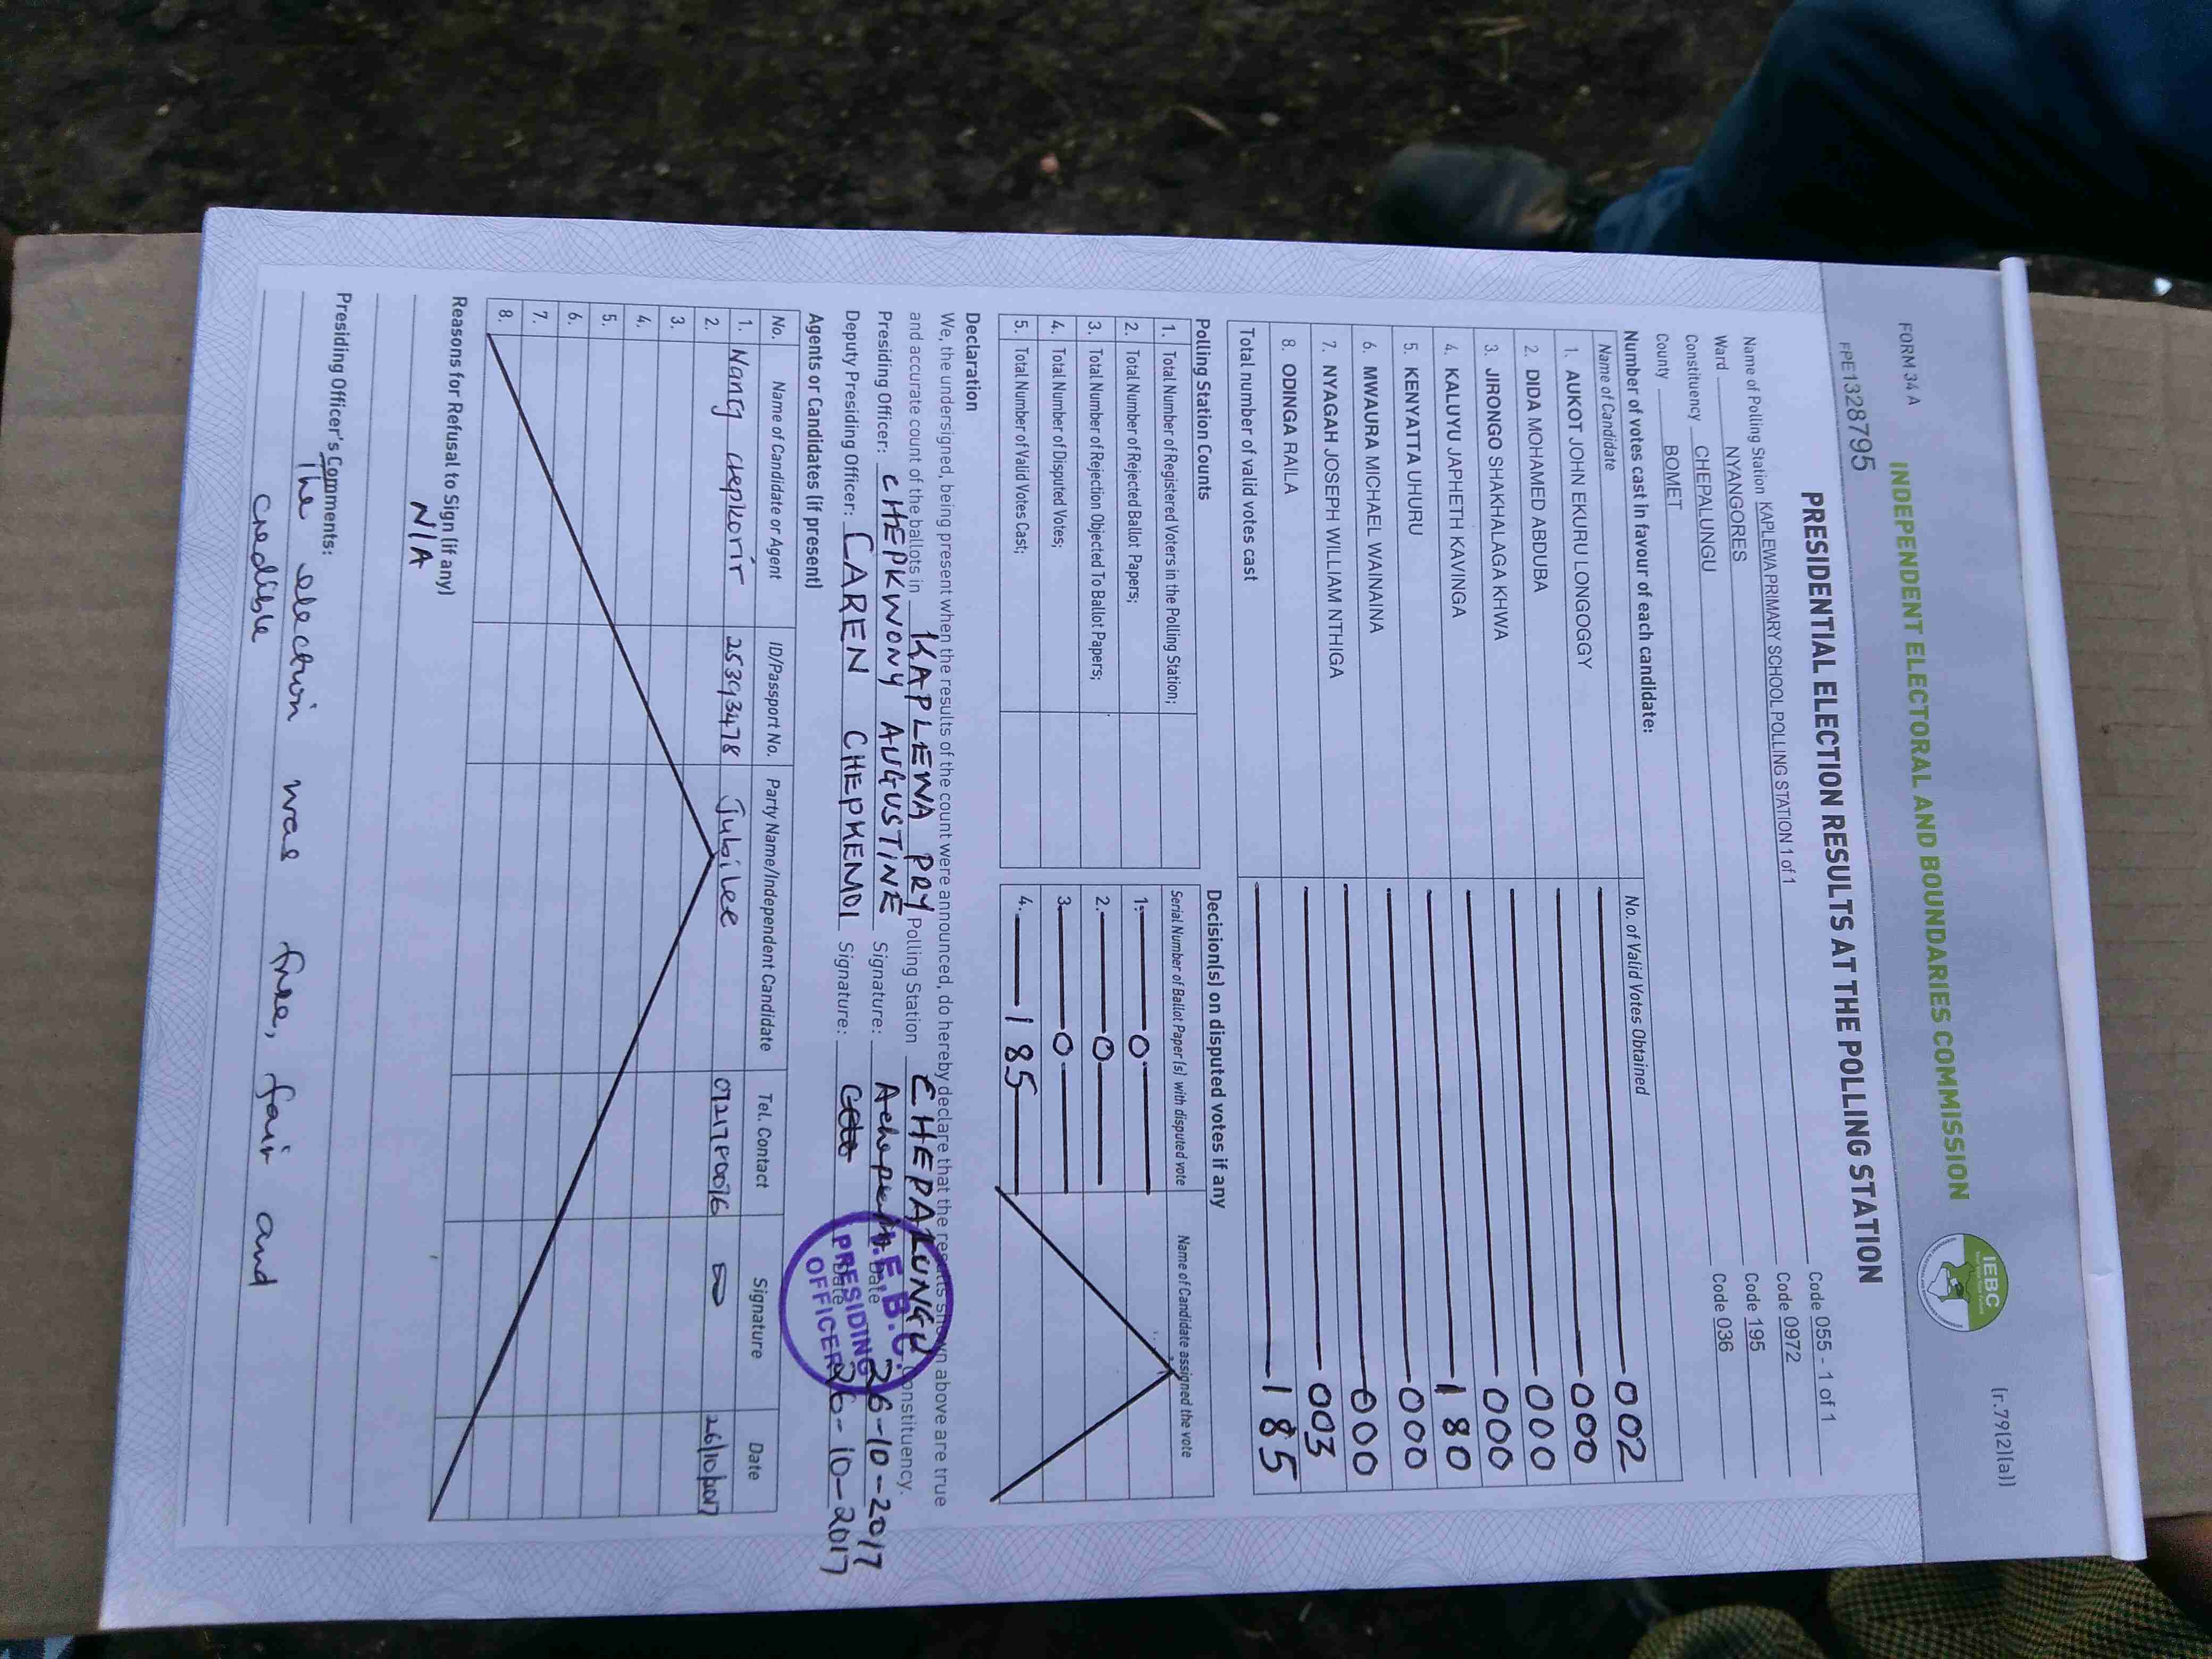 FORM 34 A
(r.79(2)(a))
INDEPENDENT ELECTORAL AND BOUNDARIES COMMISSION
IEBC
FPE1328795
PRESIDENTIAL ELECTION RESULTS AT THE POLLING STATION
Name of Polling Station KAPLEWA PRIMARY SCHOOL POLLING STATION 1 of 1 Code 055 - 1 of 1
Ward NYANGORES Code 0972
Constituency CHEPALUNGU Code 195
County BOMET Code 036
Number of votes cast in favour of each candidate:
Name of Candidate No. of Valid Votes Obtained
1. AUKOT JOHN EKURU LONGOGGY 002
2. DIDA MOHAMED ABDUBA 000
3. JIRONGO SHAKHALAGA KHWA 000
4. KALUYU JAPHETH KAVINGA 000
5. KENYATTA UHURU 180
6. MWAURA MICHAEL WAINAINA 000
7. NYAGAH JOSEPH WILLIAM NTHIGA 000
8. ODINGA RAILA 003
Total number of valid votes cast 185
Polling Station Counts Decision(s) on disputed votes if any
Serial Number of Ballot Paper(s) with disputed vote Name of Candidate assigned the vote
1. Total Number of Registered Voters in the Polling Station; 1. 0
2. Total Number of Rejected Ballot Papers; 2. 0
3. Total Number of Rejection Objected To Ballot Papers; 3. 0
4. Total Number of Disputed Votes; 4. 185
5. Total Number of Valid Votes Cast;
Declaration
We, the undersigned, being present when the results of the count were announced, do hereby declare that the results shown above are true
and accurate count of the ballots in KAPLEWA PRY Polling Station CHEPALUNGU Constituency.
Presiding Officer: CHEPKWONY AUGUSTINE Signature: Date 26-10-2017
Deputy Presiding Officer: CAREN CHEPKEMOI Signature: Date 26-10-2017
I.E.B.C.
PRESIDING
OFFICER
Agents or Candidates (if present)
No. Name of Candidate or Agent ID/Passport No. Party Name/Independent Candidate Tel. Contact Signature Date
1. Nancy chepkorir 25393478 Jubilee 26/10/2017
2.
3.
4.
5.
6.
7.
8.
Reasons for Refusal to Sign (if any)
N/A
Presiding Officer's Comments:
The election was free, fair and
credible